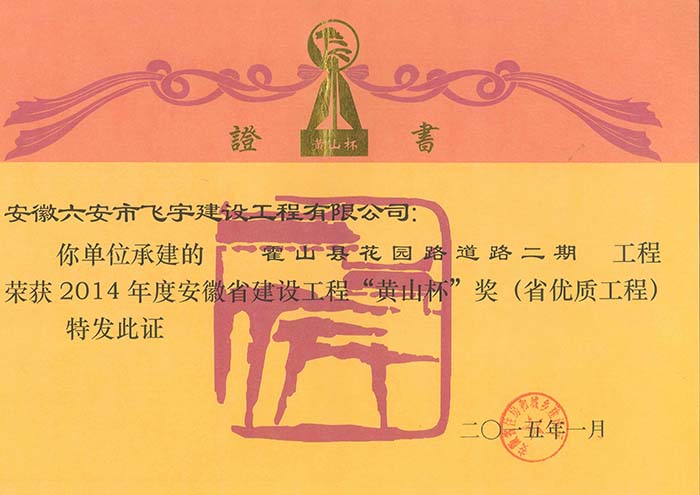 證 書
黄山杯
安徽六安市飞宇建设工程有限公司:
你单位承建的 霍山县花园路道路二期 工程
荣获2014年度安徽省建设工程“黄山杯”奖(省优质工程)
特发此证
二〇一五年一月